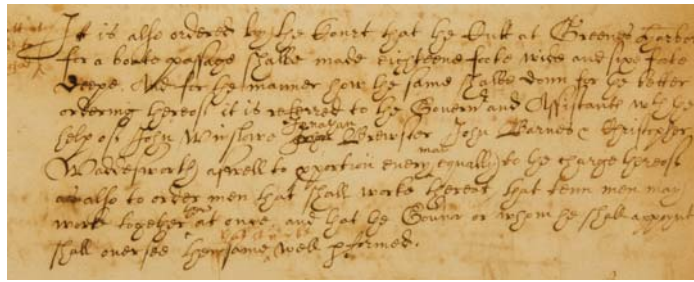 It is also ordered by the Court that the Cutt at Greenes Harbor
for a boate passage shalbe made eighteene foote wide and sixe foote
deepe. And for the manner how the same shalbe donn for the better
ordering thereof it is referred to the Governr and Assistants wth the
help of John Winslowe Jonathan Brewster John Barnes & Christopher
Waddesworth aswell to pportion every man equally to the charge thereof
as also to order men that shall worke thereat that tenn men may
worke together there at once and that the Gounor or whom he shall appoynt
shall oversee the same well pformed.